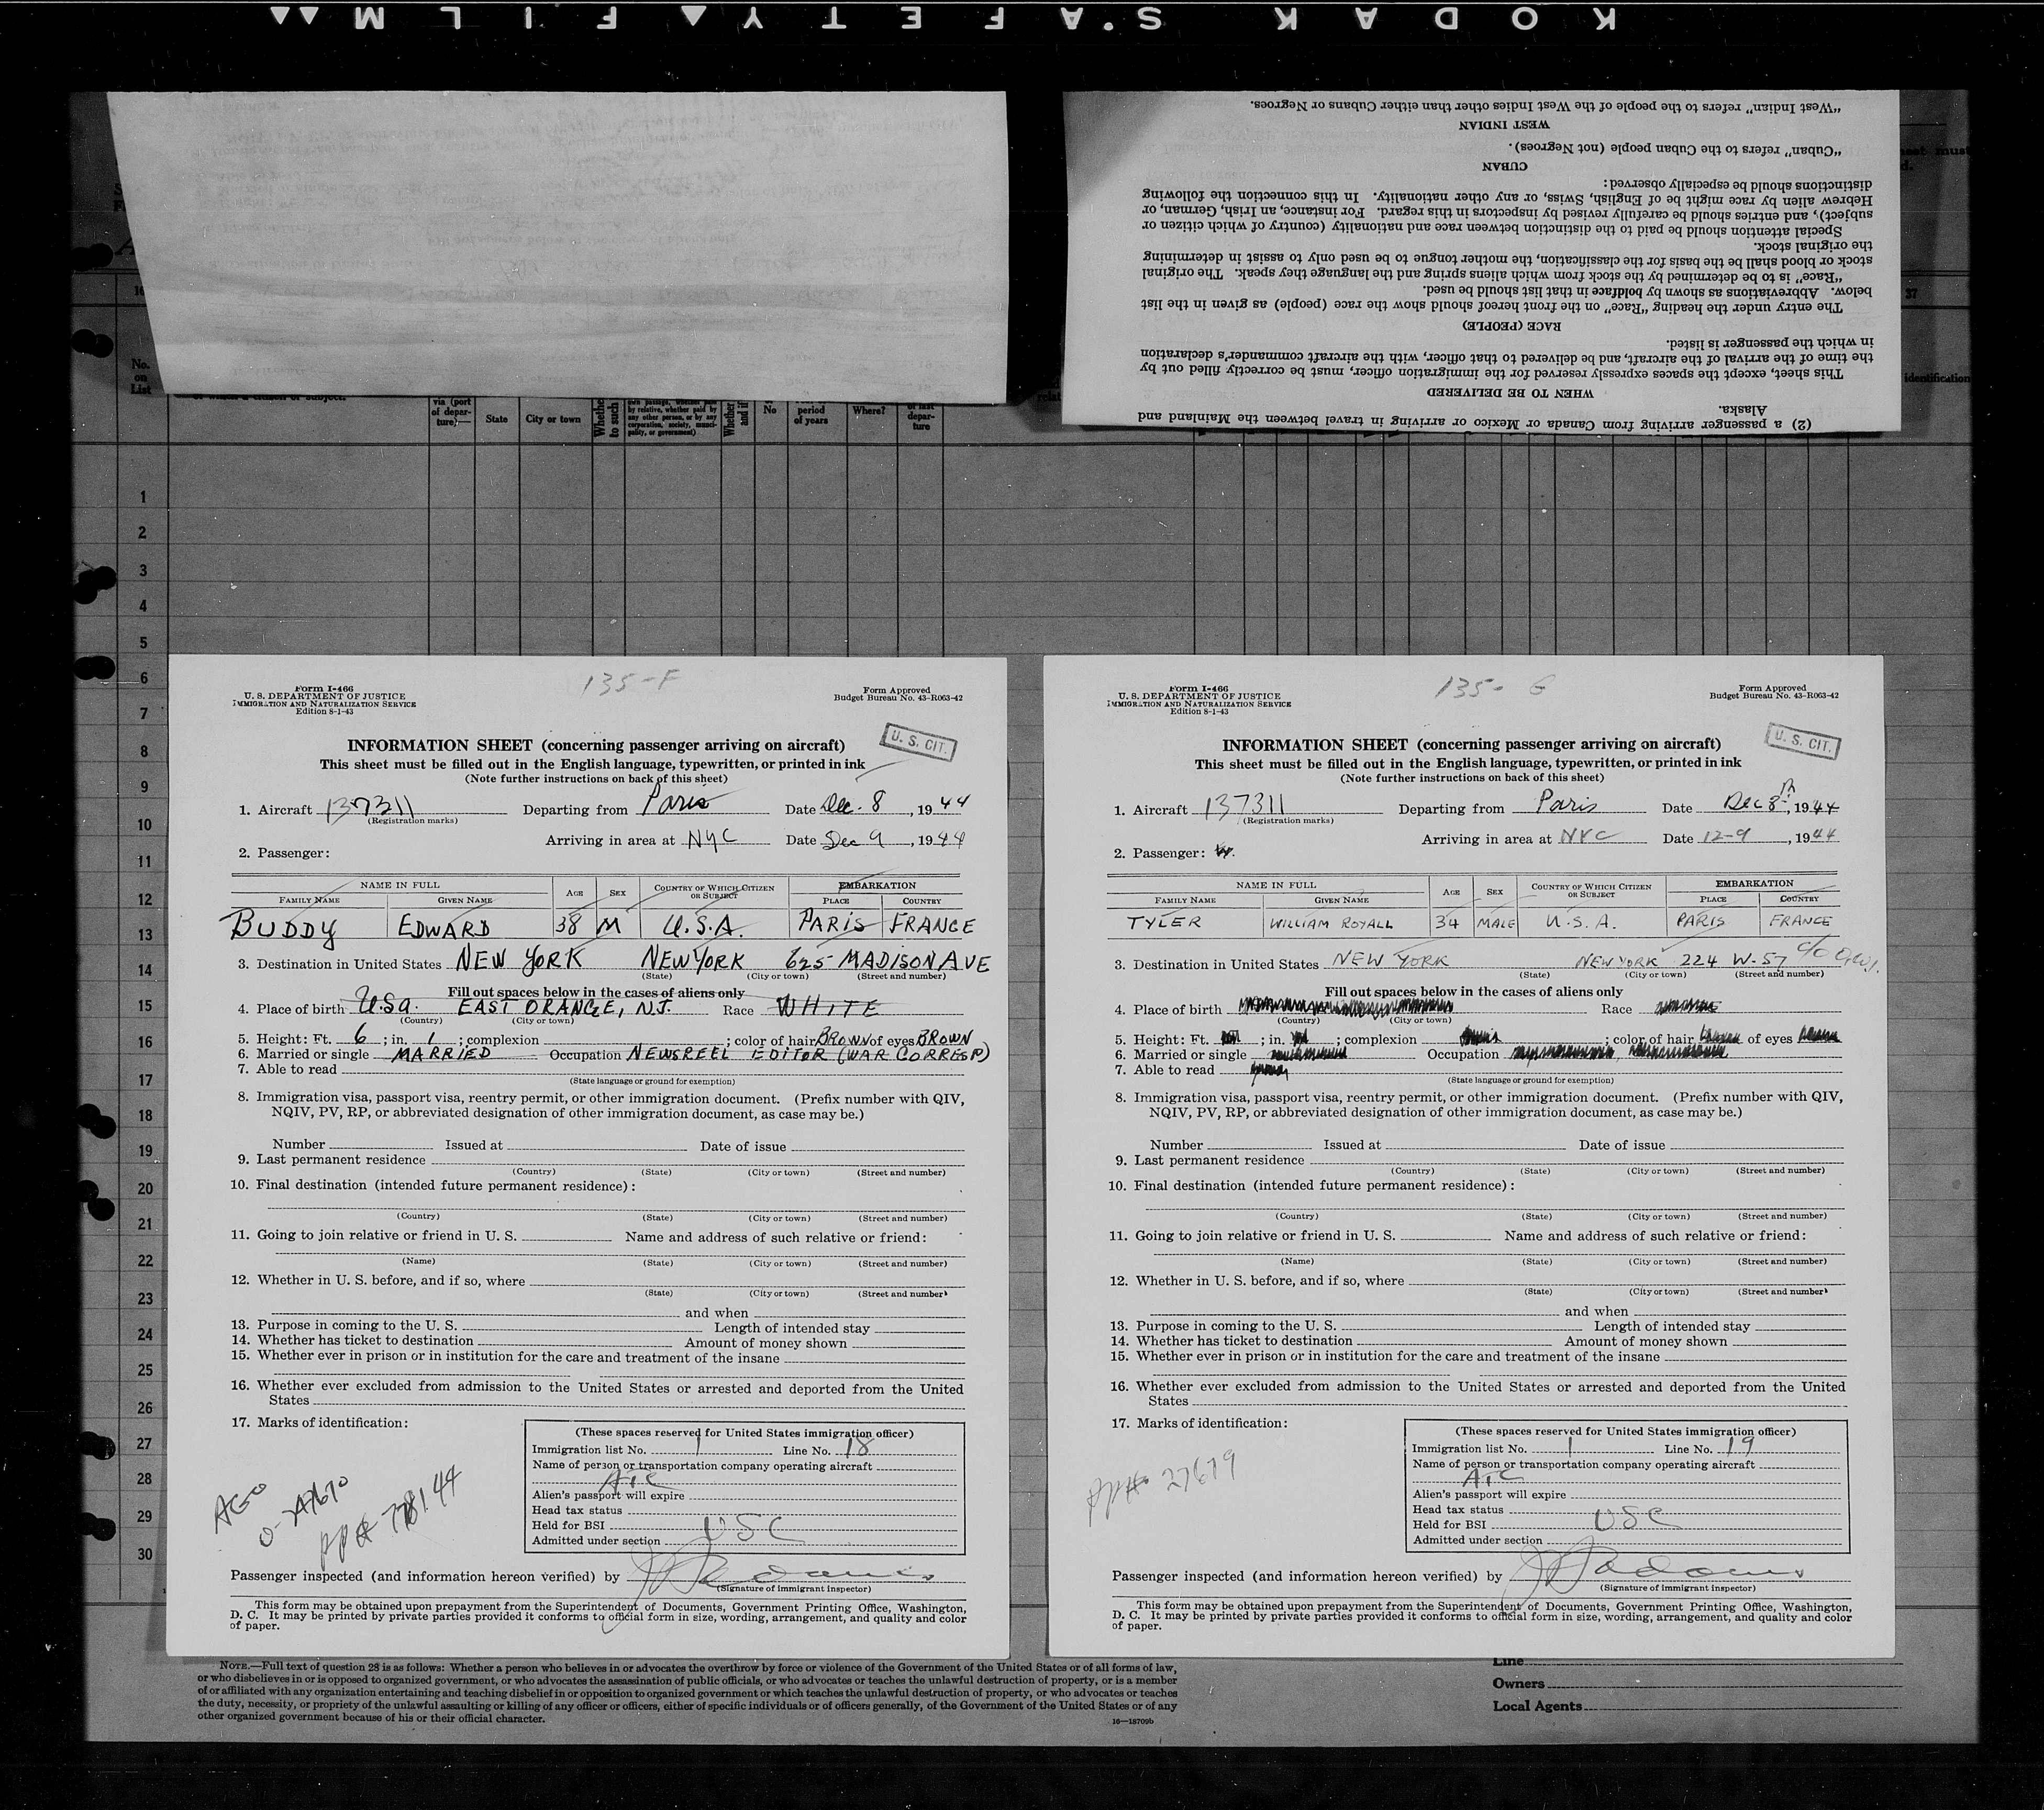 KODAK SAFETY FILM
"West Indian" refers to the people of the West Indies other than either Cubans or Negroes.
WEST INDIAN
"Cuban" refers to the Cuban people (not Negroes).
CUBAN
distinctions should be especially observed:
Hebrew alien by race might be of English, Swiss, or any other nationality. In this connection the following
subject), and entries should be carefully revised by inspectors in this regard. For instance, an Irish, German, or
Special attention should be paid to the distinction between race and nationality (country of which citizen or
the original stock.
stock or blood shall be the basis for the classification, the mother tongue to be used only to assist in determining
"Race" is to be determined by the stock from which aliens spring and the language they speak. The original
below. Abbreviations as shown by boldface in that list should be used.
The entry under the heading "Race" on the front hereof should show the race (people) as given in the list
RACE (PEOPLE)
in which the passenger is listed.
the time of the arrival of the aircraft, and be delivered to that officer, with the aircraft commander's declaration
This sheet, except the spaces expressly reserved for the immigration officer, must be correctly filled out by
WHEN TO BE DELIVERED
Alaska.
(2) a passenger arriving from Canada or Mexico or arriving in travel between the Mainland and
37
identification
No. on List
via (port of departure)—
State
City or town
Whether
to such
by relative, whether paid by any other person, or by any corporation, society, municipality, or government)
Whether
and if
No
period of years
Where?
of last departure
1
2
3
4
5
6
7
8
9
10
11
12
13
14
15
16
17
18
19
20
21
22
23
24
25
26
27
28
29
30
135-F
Form I-466
U. S. DEPARTMENT OF JUSTICE
IMMIGRATION AND NATURALIZATION SERVICE
Edition 8-1-43
Form Approved
Budget Bureau No. 43-R063-42
U. S. CIT.
INFORMATION SHEET (concerning passenger arriving on aircraft)
This sheet must be filled out in the English language, typewritten, or printed in ink
(Note further instructions on back of this sheet)
1. Aircraft 137311 Departing from Paris Date Dec. 8, 1944
(Registration marks)
Arriving in area at NYC Date Dec 9, 1944
2. Passenger:
NAME IN FULL AGE SEX COUNTRY OF WHICH CITIZEN OR SUBJECT EMBARKATION
FAMILY NAME GIVEN NAME PLACE COUNTRY
BUDDY EDWARD 38 M U.S.A. PARIS FRANCE
3. Destination in United States NEW YORK NEW YORK 625 MADISON AVE
(State) (City or town) (Street and number)
Fill out spaces below in the cases of aliens only
4. Place of birth U.S.A. EAST ORANGE, N.J. Race WHITE
(Country) (City or town)
5. Height: Ft. 6; in. 1; complexion ; color of hair BROWN of eyes BROWN
6. Married or single MARRIED Occupation NEWSREEL EDITOR (WAR CORRESP)
7. Able to read
(State language or ground for exemption)
8. Immigration visa, passport visa, reentry permit, or other immigration document. (Prefix number with QIV,
NQIV, PV, RP, or abbreviated designation of other immigration document, as case may be.)
Number Issued at Date of issue
9. Last permanent residence
(Country) (State) (City or town) (Street and number)
10. Final destination (intended future permanent residence):
(Country) (State) (City or town) (Street and number)
11. Going to join relative or friend in U. S. Name and address of such relative or friend:
(Name) (State) (City or town) (Street and number)
12. Whether in U. S. before, and if so, where
(State) (City or town) (Street and number)
and when
13. Purpose in coming to the U. S. Length of intended stay
14. Whether has ticket to destination Amount of money shown
15. Whether ever in prison or in institution for the care and treatment of the insane
16. Whether ever excluded from admission to the United States or arrested and deported from the United
States
17. Marks of identification:
(These spaces reserved for United States immigration officer)
Immigration list No. 1 Line No. 18
Name of person or transportation company operating aircraft
ATC
Alien's passport will expire
Head tax status
Held for BSI USC
Admitted under section
AGO
Passenger inspected (and information hereon verified) by
(Signature of immigrant inspector)
This form may be obtained upon prepayment from the Superintendent of Documents, Government Printing Office, Washington,
D. C. It may be printed by private parties provided it conforms to official form in size, wording, arrangement, and quality and color
of paper.
135- G
Form I-466
U. S. DEPARTMENT OF JUSTICE
IMMIGRATION AND NATURALIZATION SERVICE
Edition 8-1-43
Form Approved
Budget Bureau No. 43-R063-42
U. S. CIT.
INFORMATION SHEET (concerning passenger arriving on aircraft)
This sheet must be filled out in the English language, typewritten, or printed in ink
(Note further instructions on back of this sheet)
1. Aircraft 137311 Departing from Paris Date Dec 8th, 1944
(Registration marks)
Arriving in area at NYC Date 12-9, 1944
2. Passenger:
NAME IN FULL AGE SEX COUNTRY OF WHICH CITIZEN OR SUBJECT EMBARKATION
FAMILY NAME GIVEN NAME PLACE COUNTRY
TYLER WILLIAM ROYALL 34 MALE U.S.A. PARIS FRANCE
3. Destination in United States NEW YORK NEW YORK 224 W-57 c/o O.W.I.
(State) (City or town) (Street and number)
Fill out spaces below in the cases of aliens only
4. Place of birth Race
(Country) (City or town)
5. Height: Ft. ; in. ; complexion ; color of hair of eyes
6. Married or single Occupation
7. Able to read
(State language or ground for exemption)
8. Immigration visa, passport visa, reentry permit, or other immigration document. (Prefix number with QIV,
NQIV, PV, RP, or abbreviated designation of other immigration document, as case may be.)
Number Issued at Date of issue
9. Last permanent residence
(Country) (State) (City or town) (Street and number)
10. Final destination (intended future permanent residence):
(Country) (State) (City or town) (Street and number)
11. Going to join relative or friend in U. S. Name and address of such relative or friend:
(Name) (State) (City or town) (Street and number)
12. Whether in U. S. before, and if so, where
(State) (City or town) (Street and number)
and when
13. Purpose in coming to the U. S. Length of intended stay
14. Whether has ticket to destination Amount of money shown
15. Whether ever in prison or in institution for the care and treatment of the insane
16. Whether ever excluded from admission to the United States or arrested and deported from the United
States
17. Marks of identification:
(These spaces reserved for United States immigration officer)
Immigration list No. 1 Line No. 19
Name of person or transportation company operating aircraft
ATC
Alien's passport will expire
Head tax status
Held for BSI USC
Admitted under section
27679
Passenger inspected (and information hereon verified) by
(Signature of immigrant inspector)
This form may be obtained upon prepayment from the Superintendent of Documents, Government Printing Office, Washington,
D. C. It may be printed by private parties provided it conforms to official form in size, wording, arrangement, and quality and color
of paper.
NOTE.—Full text of question 28 is as follows: Whether a person who believes in or advocates the overthrow by force or violence of the Government of the United States or of all forms of law,
or who disbelieves in or is opposed to organized government, or who advocates the assassination of public officials, or who advocates or teaches the unlawful destruction of property, or is a member
of or affiliated with any organization entertaining and teaching disbelief in or opposition to organized government or which teaches the unlawful destruction of property, or who advocates or teaches
the duty, necessity, or propriety of the unlawful assaulting or killing of any officer or officers, either of specific individuals or of officers generally, of the Government of the United States or of any
other organized government because of his or their official character.
16—18709b
Line
Owners
Local Agents